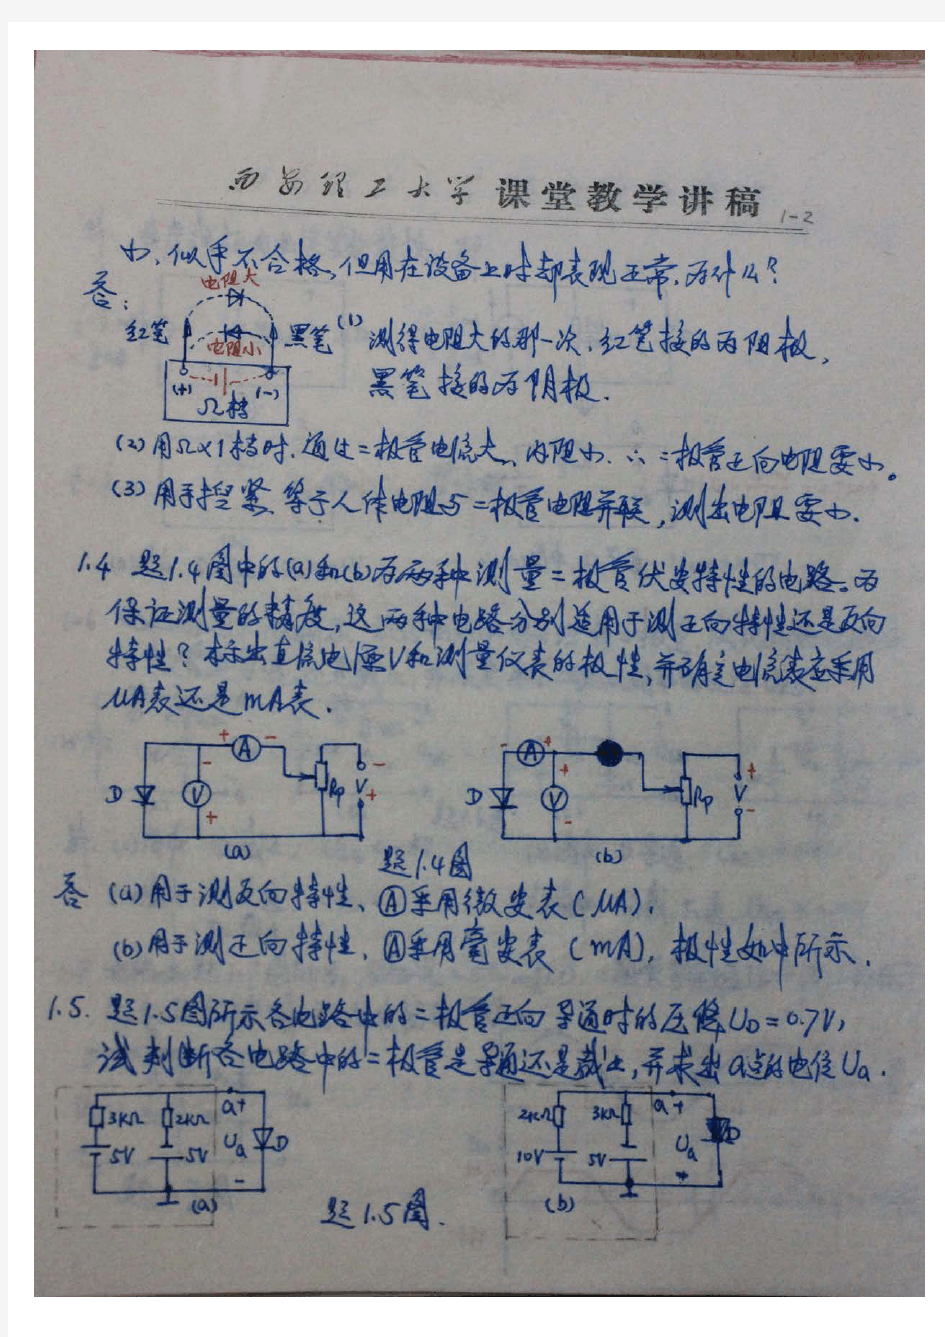 西安理工大学 课堂教学讲稿 1-2
小,似乎不合格,但用在设备上时却表现正常,为什么?
答:
电阻大
红笔 电阻小 黑笔
(+) (-)
Ω档
(1) 测得电阻大的那一次,红笔接的为阳极,
黑笔接的为阴极.
(2)用Ω×1档时,通过二极管电流大,内阻小.∴二极管正向电阻要小。
(3)用手捏紧,等于人体电阻与二极管电阻并联,测出电阻要小.
1.4 题1.4图中的(a)和(b)为两种测量二极管伏安特性的电路。为
保证测量的精度,这两种电路分别适用于测正向特性还是反向
特性?标出直流电源V和测量仪表的极性,并确定电流表应采用
μA表还是mA表.
+ A - D - V + Rp - V +
(a)
- A + D + V - Rp + V -
(b)
题1.4图
答 (a)用于测反向特性、Ⓐ采用微安表(μA).
(b)用于测正向特性、Ⓐ采用毫安表(mA),极性如中所示.
1.5. 题1.5图所示各电路中的二极管正向导通时的压降UD=0.7V,
试判断各电路中的二极管是导通还是截止,并求出a点的电位Ua.
3kΩ 2kΩ a+ Ua D
5V 5V -
(a)
2kΩ 3kΩ a+ Ua D
10V 5V
(b)
题1.5图.